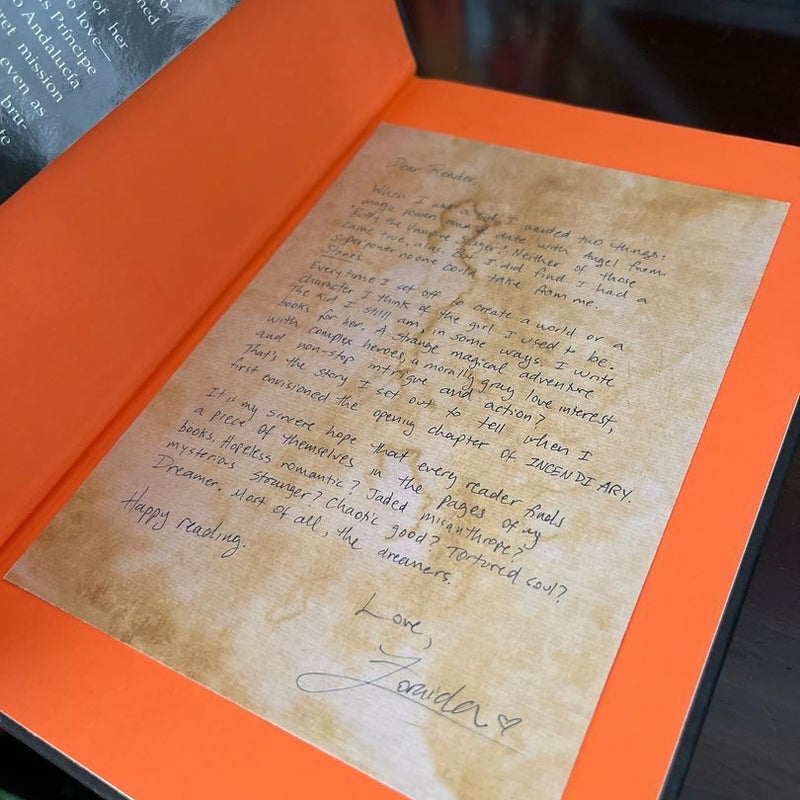 of her
ned
to love—
s Príncipe
o Andalucía
ret mission
even as
bru-
te
Dear Reader,
When I was a kid, I wanted two things:
magic powers and a date with Angel from
Buffy the Vampire Slayer. Neither of those
came true, alas. But I did find I had a
superpower no one could take from me.
Stories.
Everytime I set off to create a world or a
character I think of the girl I used to be.
The kid I still am, in some ways. I write
books for her. A strange magical adventure
with complex heroes, a morally gray love interest,
and non-stop intrigue and action?
That's the story I set out to tell when I
first envisioned the opening chapter of INCENDIARY.
It is my sincere hope that every reader finds
a piece of themselves in the pages of my
books. Hopeless romantic? Jaded misanthrope?
mysterious stranger? Chaotic good? Tortured soul?
Dreamer. Most of all, the dreamers.
Happy reading.
Love,
Zoraida ♡